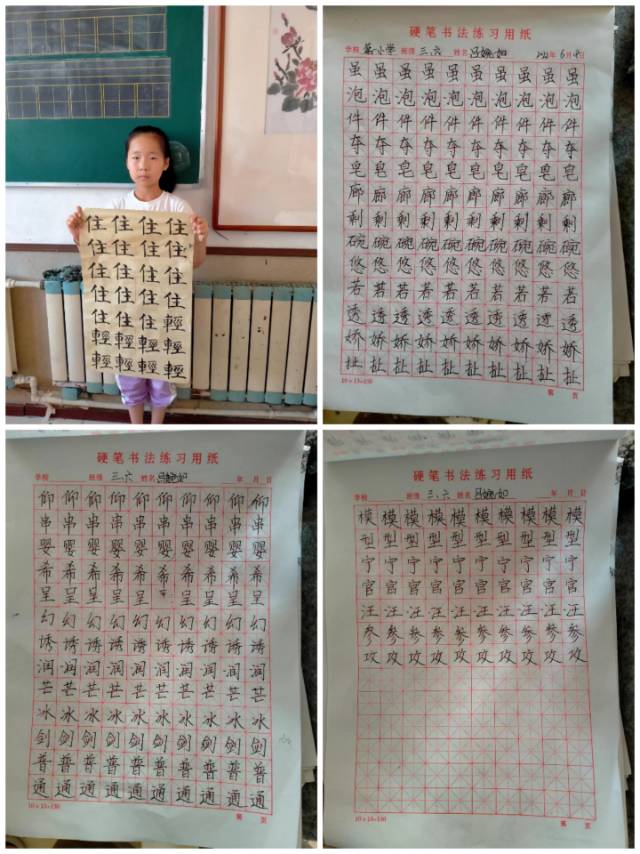 住住住住
住住住住
住住住住
住住住住
住住住住
輕輕輕輕
輕輕輕輕
硬笔书法练习用纸
学校 小学 班级 三、六 姓名 吕婉如 年6月 日
虽虽虽虽虽虽虽虽虽虽
泡泡泡泡泡泡泡泡泡泡
件件件件件件件件件件
夺夺夺夺夺夺夺夺夺夺
皂皂皂皂皂皂皂皂皂皂
廊廊廊廊廊廊廊廊廊廊
剩剩剩剩剩剩剩剩剩剩
碗碗碗碗碗碗碗碗碗碗
悠悠悠悠悠悠悠悠悠悠
若若若若若若若若若若
透透透透透透透透透透
娇娇娇娇娇娇娇娇娇娇
扯扯扯扯扯扯扯扯扯扯
10×13=130 第 页
硬笔书法练习用纸
学校 班级 三、六 姓名 吕婉如 年 月 日
仰仰仰仰仰仰仰仰仰仰
串串串串串串串串串串
婴婴婴婴婴婴婴婴婴婴
希希希希希希希希希希
呈呈呈呈呈呈呈呈呈呈
幻幻幻幻幻幻幻幻幻幻
诱诱诱诱诱诱诱诱诱诱
润润润润润润润润润润
芒芒芒芒芒芒芒芒芒芒
冰冰冰冰冰冰冰冰冰冰
剑剑剑剑剑剑剑剑剑剑
普普普普普普普普普普
通通通通通通通通通通
10×13=130 第 页
硬笔书法练习用纸
学校 班级 三、六 姓名 吕婉如 年 月 日
模模模模模模模模模模
型型型型型型型型型型
宁宁宁宁宁宁宁宁宁宁
宫宫宫宫宫宫宫宫宫宫
汪汪汪汪汪汪汪汪汪汪
参参参参参参参参参参
攻攻攻攻攻攻攻攻攻攻
10×13=130 第 页